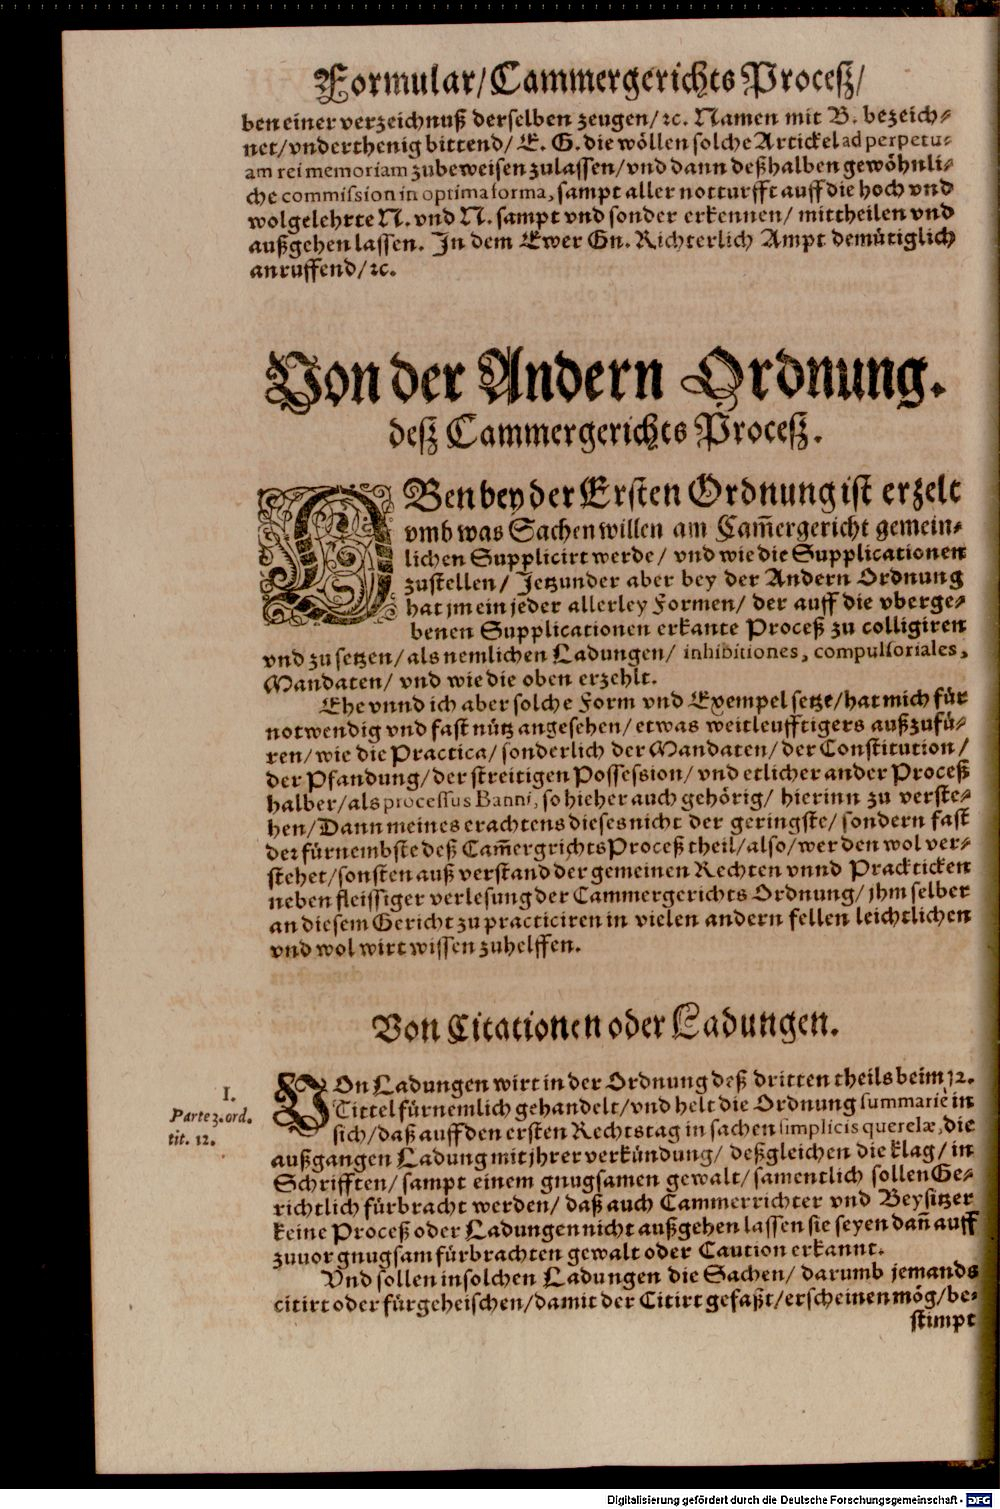 Formular/Cammergerichts Proceſz/
ben einer verzeichnuß derſelben zeugen/ ꝛc. Namen mit B. bezeich⸗
net/vnderthenig bittend/ E. G. die wöllen ſolche Artickel ad perpetu-
am rei memoriam zubeweiſen zulaſſen/ vnd dann deßhalben gewöhnli⸗
che commiſsion in optima forma, ſampt aller notturfft auff die hoch vnd
wolgelehrte N. vnd N. ſampt vnd ſonder erkennen/ mittheilen vnd
außgehen laſſen. In dem Ewer Gn. Richterlich Ampt demütiglich
anruffend/ ꝛc.
Von der Andern Ordnung.
deſz Cammergerichts Proceſz.
OBen bey der Erſten Ordnung iſt erzelt
vmb was Sachen willen am Cam̃ergericht gemein⸗
lichen Supplicirt werde/ vnd wie die Supplicationen
zuſtellen/ Jetzunder aber bey der Andern Ordnung
hat jm ein jeder allerley Formen/ der auff die vberge⸗
benen Supplicationen erkante Proceß zu colligiren
vnd zu ſetzen/ als nemlichen Ladungen/ inhibitiones, compulſoriales,
Mandaten/ vnd wie die oben erzehlt.
Ehe vnnd ich aber ſolche Form vnd Exempel ſetze/ hat mich für
notwendig vnd faſt nütz angeſehen/ etwas weitleufftigers außzufü⸗
ren/ wie die Practica/ ſonderlich der Mandaten/ der Conſtitution/
der Pfandung/ der ſtreitigen Poſſeſſion/ vnd etlicher ander Proceß
halber/ als proceſſus Banni, ſo hieher auch gehörig/ hierinn zu verſte⸗
hen/ Dann meines erachtens dieſes nicht der geringſte/ ſondern faſt
der fürnembſte deß Cam̃ergrichts Proceß theil/ alſo/ wer den wol ver⸗
ſtehet/ ſonſten auß verſtand der gemeinen Rechten vnnd Prackticken
neben fleiſſiger verleſung der Cammergerichts Ordnung/ jhm ſelber
an dieſem Gericht zu practiciren in vielen andern fellen leichtlichen
vnd wol wirt wiſſen zuhelffen.
Von Citationen oder Ladungen.
I.
Parte 3. ord.
tit. 12.
VOn Ladungen wirt in der Ordnung deß dritten theils beim 12.
Tittel fürnemlich gehandelt/ vnd helt die Ordnung ſummariè in
ſich/ daß auff den erſten Rechtstag in ſachen ſimplicis querelæ, die
außgangen Ladung mit jhrer verkündung/ deßgleichen die klag/ in
Schrifften/ ſampt einem gnugſamen gewalt/ ſamentlich ſollen Ge⸗
richtlich fürbracht werden/ daß auch Cammerrichter vnd Beyſitzer
keine Proceß oder Ladungen nicht außgehen laſſen ſie ſeyen dañ auff
zuuor gnugſam fürbrachten gewalt oder Caution erkannt.
Vnd ſollen in ſolchen Ladungen die Sachen/ darumb jemands
citirt oder fürgeheiſchen/ damit der Citirt gefaßt/ erſcheinen mög/ be⸗
ſtimpt
Digitalisierung gefördert durch die Deutsche Forschungsgemeinschaft - DFG